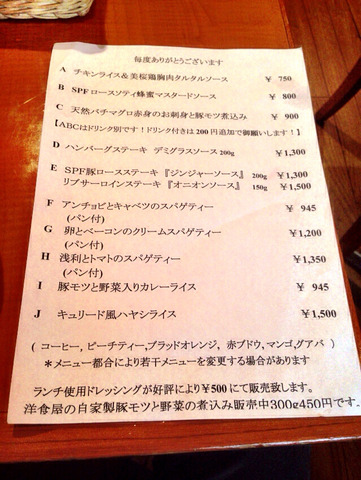 毎度ありがとうございます
A チキンライス＆美桜鶏胸肉タルタルソース ￥ 750
B SPFロースソティ蜂蜜マスタードソース ￥ 800
C 天然バチマグロ赤身のお刺身と豚モツ煮込み ￥ 900
【ABCはドリンク別です！ドリンク付きは200円追加で御願いします！】
D ハンバーグステーキ デミグラスソース200g ￥1,300
E SPF豚ロースステーキ 『ジンジャーソース』 200g ￥1,300
リブサーロインステーキ 『オニオンソース』 150g ￥1,500
F アンチョビとキャベツのスパゲティー ￥ 945
(パン付)
G 卵とベーコンのクリームスパゲティー ￥1,200
(パン付)
H 浅利とトマトのスパゲティー ￥1,350
(パン付)
I 豚モツと野菜入りカレーライス ￥ 945
J キュリード風ハヤシライス ￥1,500
( コーヒー, ピーチティー,ブラッドオレンジ, 赤ブドウ,マンゴ,グアバ )
＊メニュー都合により若干メニューを変更する場合があります
ランチ使用ドレッシングが好評により￥500にて販売致します。
洋食屋の自家製豚モツと野菜の煮込み販売中300g450円です。